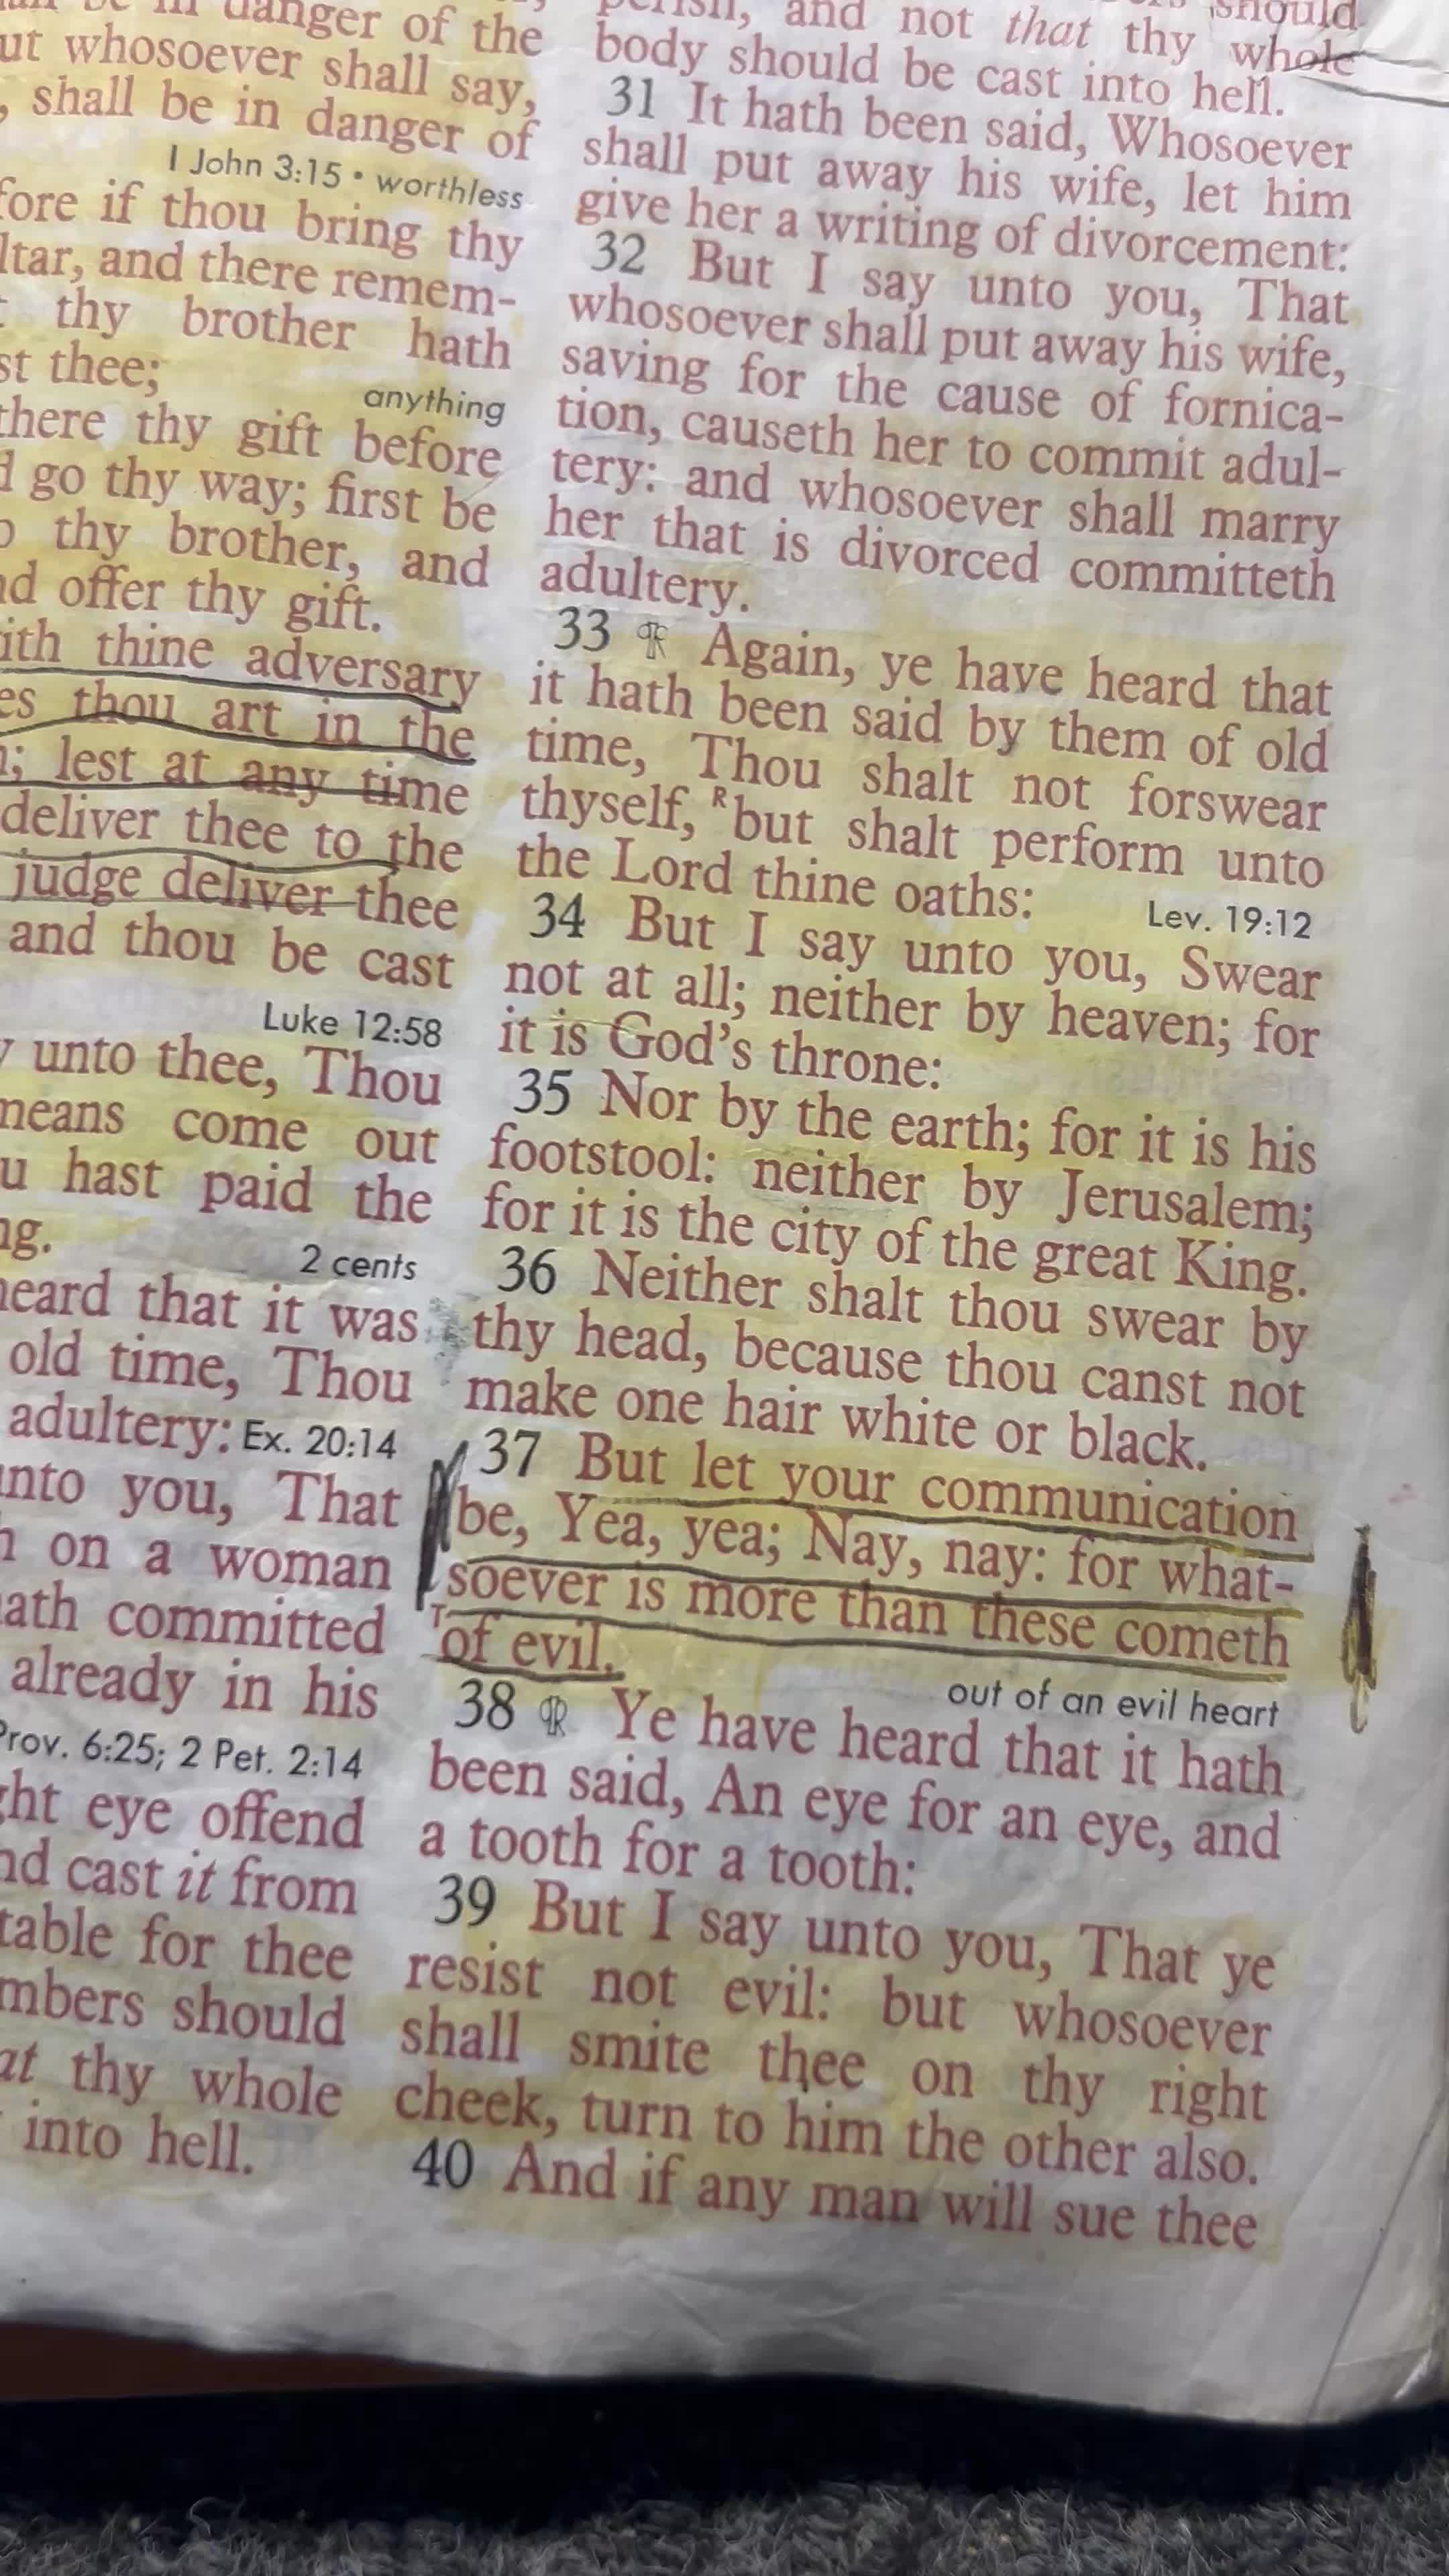 danger of the
ut whosoever shall say,
, shall be in danger of
I John 3:15 • worthless
fore if thou bring thy
ltar, and there remem-
thy brother hath
st thee;
anything
there thy gift before
d go thy way; first be
o thy brother, and
nd offer thy gift.
ith thine adversary
es thou art in the
n; lest at any time
deliver thee to the
judge deliver thee
and thou be cast
Luke 12:58
y unto thee, Thou
means come out
u hast paid the
ng.
2 cents
heard that it was
old time, Thou
adultery: Ex. 20:14
unto you, That
h on a woman
ath committed
already in his
Prov. 6:25; 2 Pet. 2:14
ght eye offend
nd cast it from
table for thee
mbers should
at thy whole
into hell.
should
perish, and not that thy whole
body should be cast into hell.
31 It hath been said, Whosoever
shall put away his wife, let him
give her a writing of divorcement:
32 But I say unto you, That
whosoever shall put away his wife,
saving for the cause of fornica-
tion, causeth her to commit adul-
tery: and whosoever shall marry
her that is divorced committeth
adultery.
33 ¶R Again, ye have heard that
it hath been said by them of old
time, Thou shalt not forswear
thyself, R but shalt perform unto
the Lord thine oaths: Lev. 19:12
34 But I say unto you, Swear
not at all; neither by heaven; for
it is God's throne:
35 Nor by the earth; for it is his
footstool: neither by Jerusalem;
for it is the city of the great King.
36 Neither shalt thou swear by
thy head, because thou canst not
make one hair white or black.
37 But let your communication
be, Yea, yea; Nay, nay: for what-
soever is more than these cometh
T of evil.
out of an evil heart
38 ¶R Ye have heard that it hath
been said, An eye for an eye, and
a tooth for a tooth:
39 But I say unto you, That ye
resist not evil: but whosoever
shall smite thee on thy right
cheek, turn to him the other also.
40 And if any man will sue thee